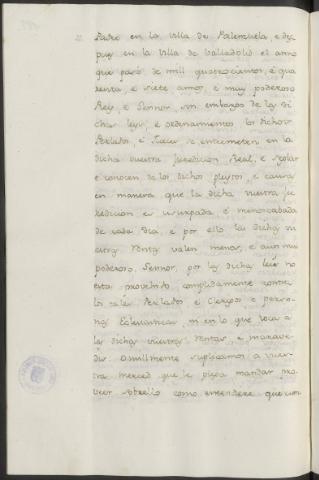 Padre en la villa de Palenzuela, e des
pues en la villa de Valladolid el anno
que pasó de mil quatrocientos, é qua
renta, é siete annos, é muy poderoso
Rey, é Sennor, sin embargo de las di
chas leys, é ordenamientos los dichos
Perlados, é Jueces se entremeten en la
dicha vuestra juredicion Real, e
e conocen de los dichos pleytos, é causas
en manera que la dicha vuestra ju
redicion es usurpada é menoscabada
de cada dia, é por ello las dichas vu
estras rentas valen menos, é aun muy
poderoso, Sennor, por la dicha ley no
esta proveido complidamente contra
los tales Perlados é Clerigos e perso
nas Eclesiasticas, ni en lo que toca a
las dichas vuestras rentas, é marave
dis omillmente suplicamos a vues
tra merced que le plega mandar pro
veer sobrello como entendiere que